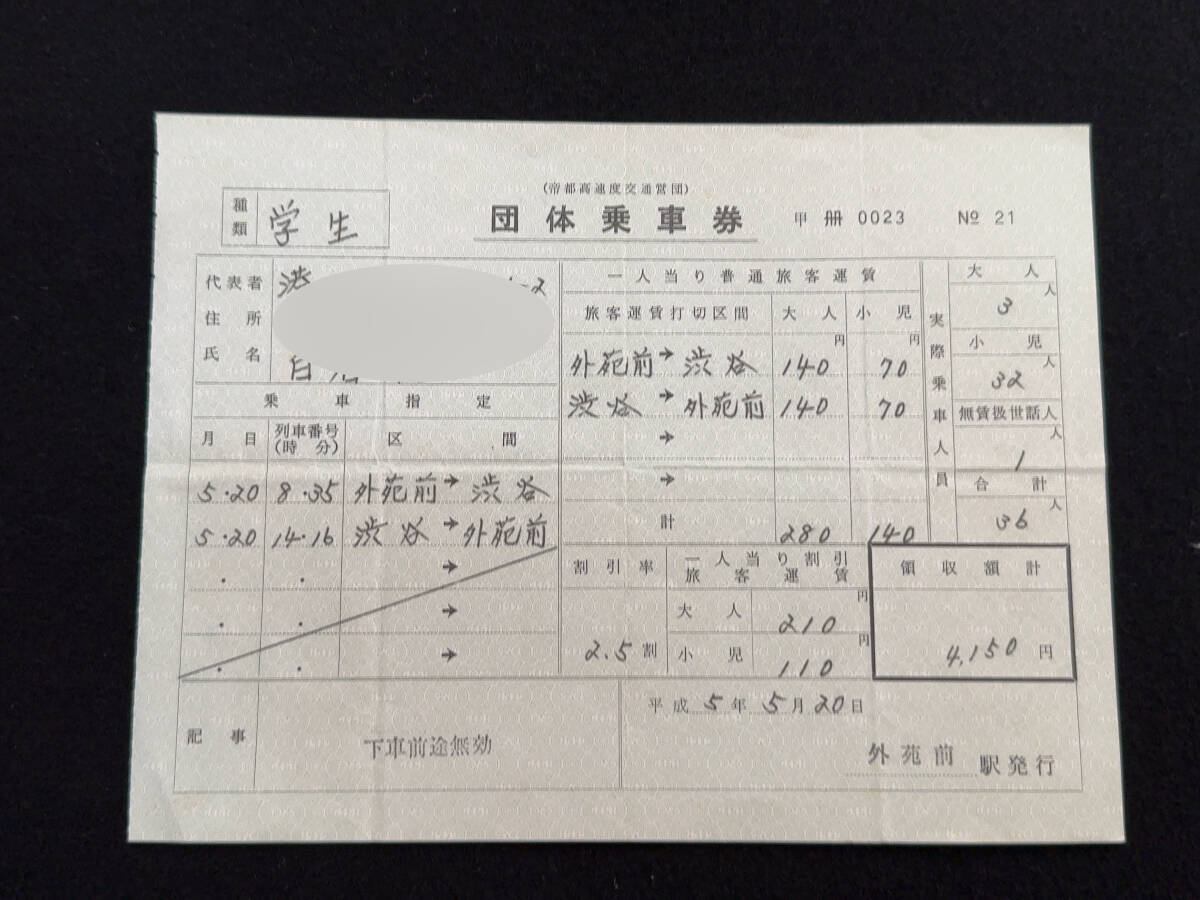 (帝都高速度交通営団)
団体乗車券
甲 册 0023 № 21
種類 学生
代表者
住所
氏名
渋
-2
乗車指定
月日 列車番号(時分) 区間
5・20 8・35 外苑前→渋谷
5・20 14・16 渋谷→外苑前
・ ・ →
・ ・ →
・ ・ →
一人当り普通旅客運賃
旅客運賃打切区間 大人 小児
外苑前→渋谷 140円 70円
渋谷→外苑前 140 70
→
→
計 280 140
実際乗車人員
大人
3人
小児
32人
無賃扱世話人
1人
合計
36人
割引率
2.5割
一人当り割引旅客運賃
大人 210円
小児 110円
領収額計
4,150円
記事 下車前途無効
平成5年5月20日
外苑前駅発行